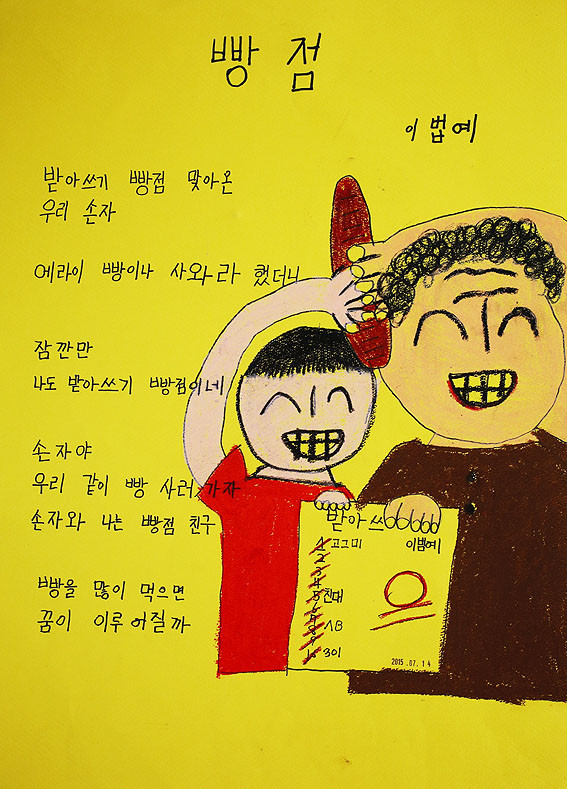 빵 점
이 법 예
받아쓰기 빵점 맞아온
우리 손자
에라이 빵이나 사와라 했더니
잠깐만
나도 받아쓰기 빵점이네
손자야
우리 같이 빵 사러 가자
손자와 나는 빵점 친구
빵을 많이 먹으면
꿈이 이루어질까
받아쓰
고그미 이법예
전대
ㅅB
30이
2015.07.14